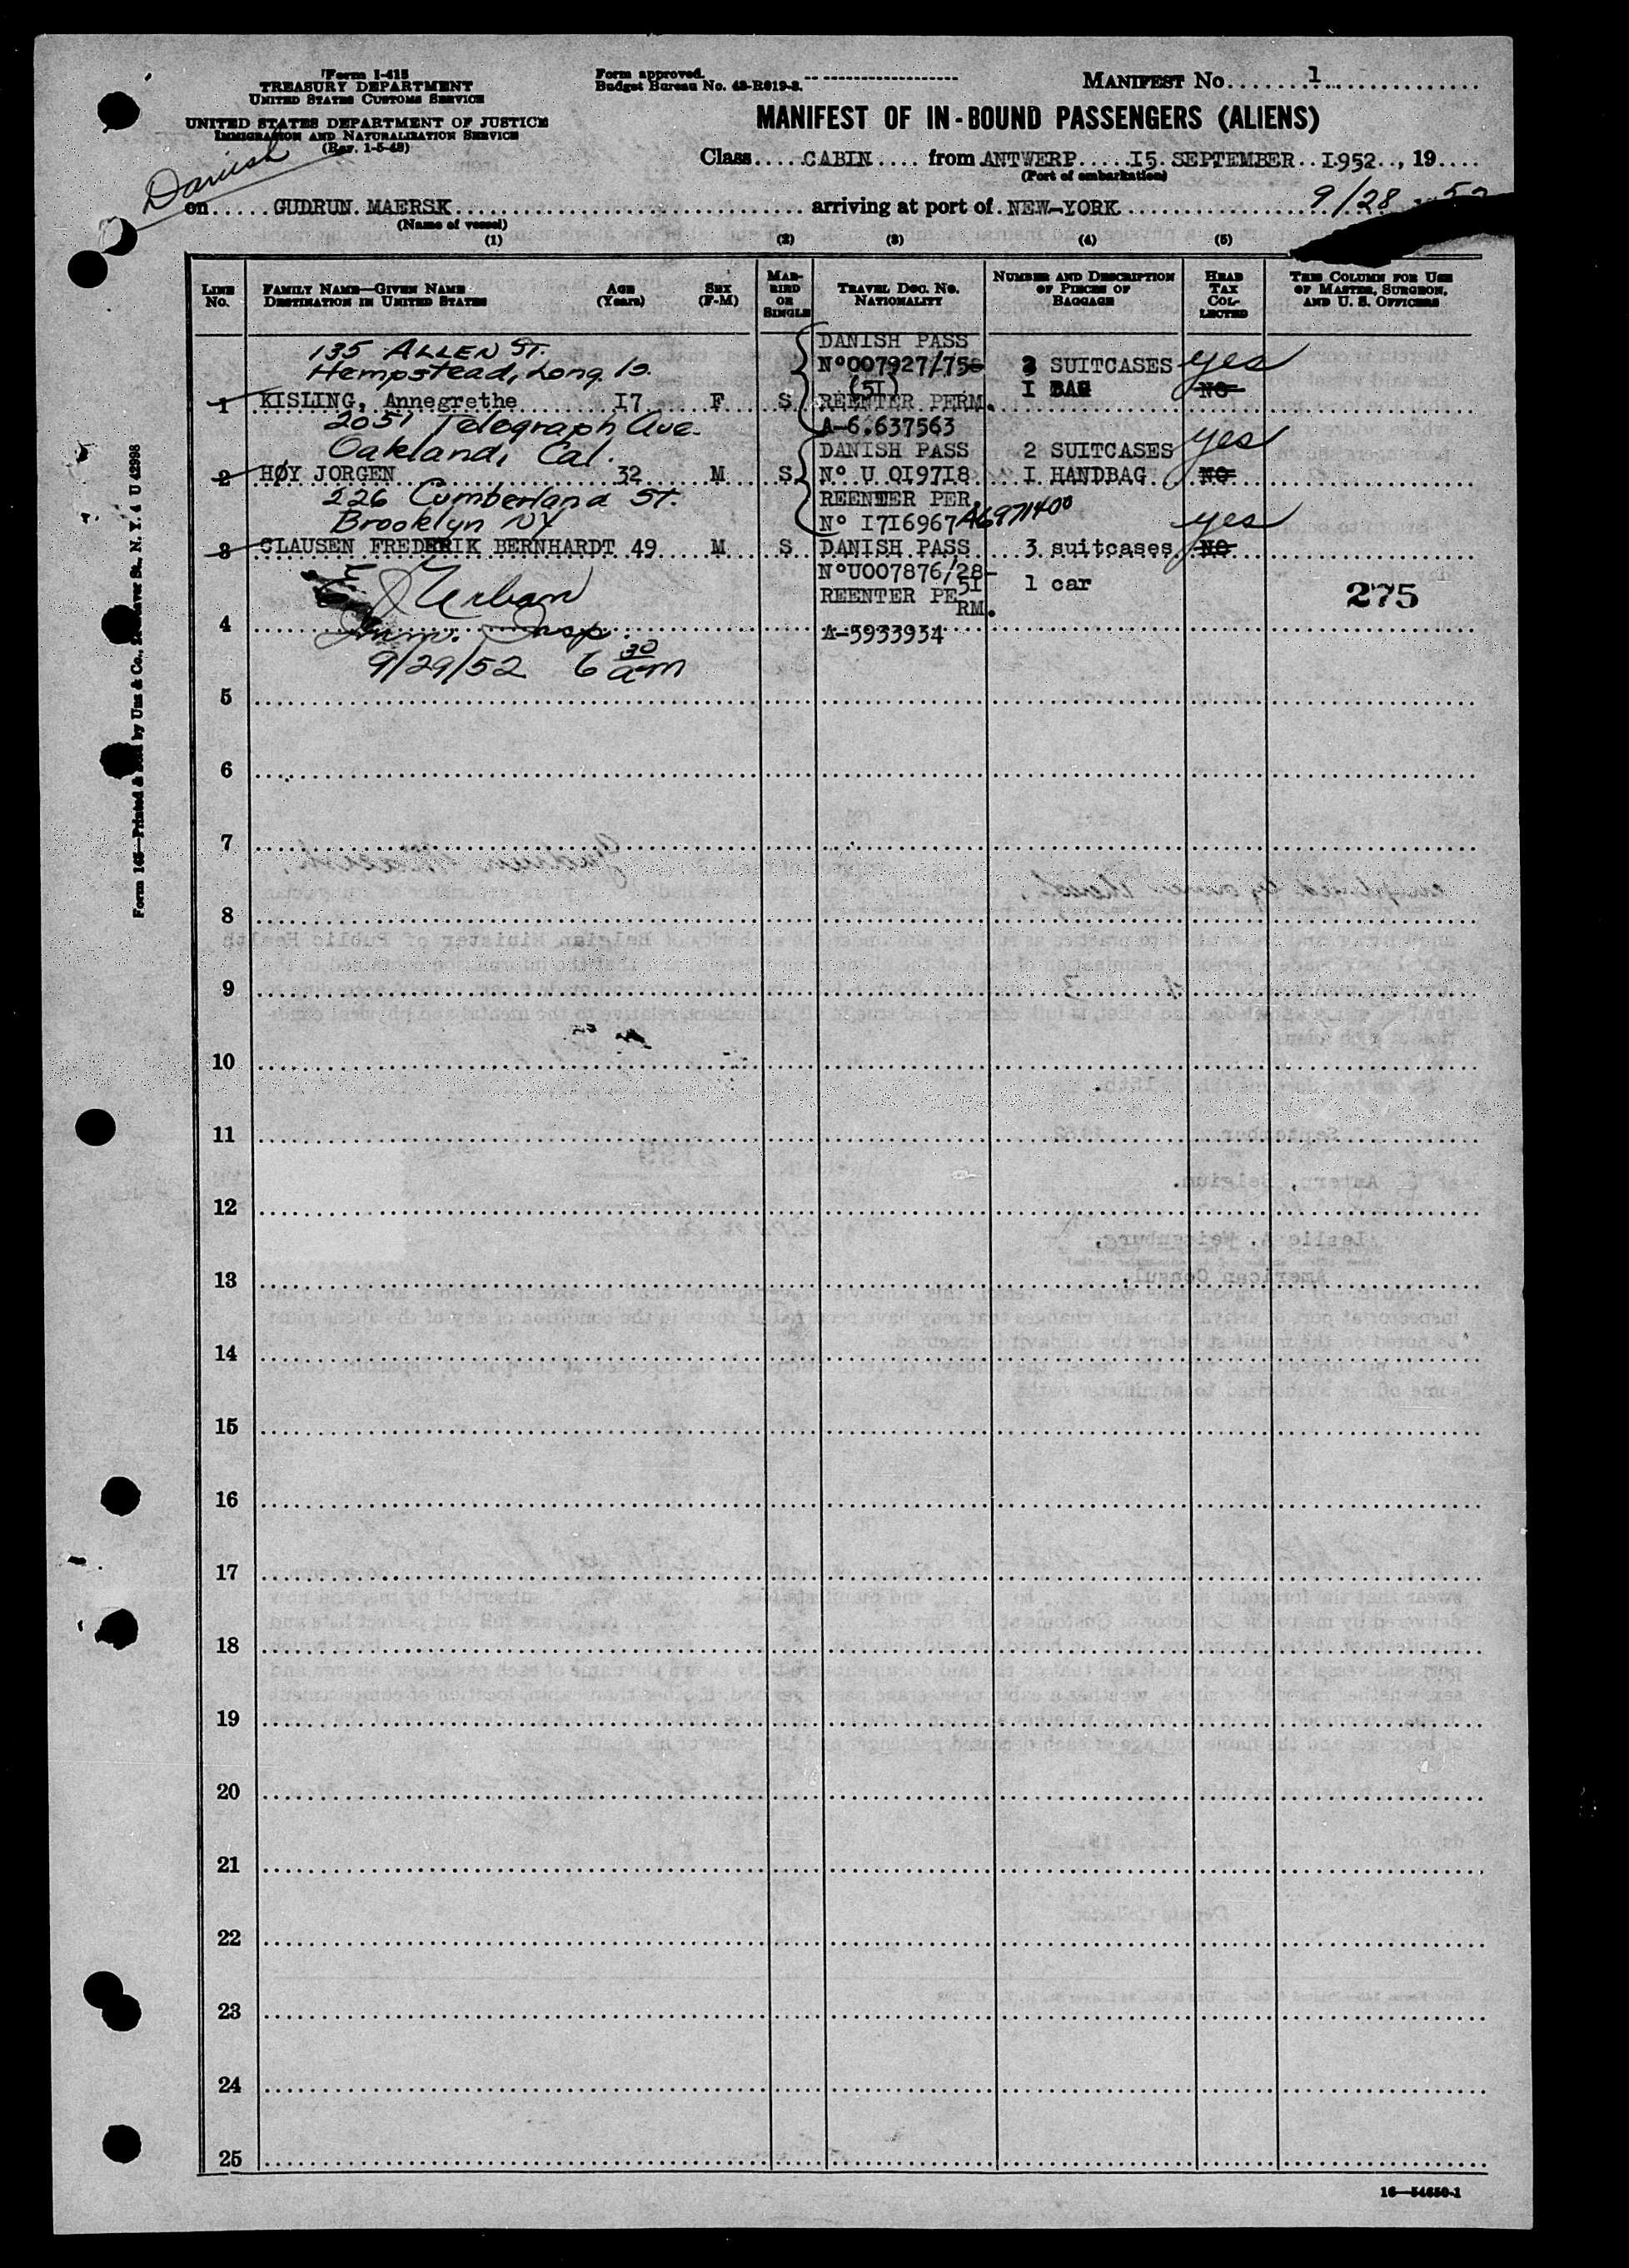 Form I-415
TREASURY DEPARTMENT
UNITED STATES CUSTOMS SERVICE
UNITED STATES DEPARTMENT OF JUSTICE
IMMIGRATION AND NATURALIZATION SERVICE
(Rev. 1-5-48)
Danish
Form approved.
Budget Bureau No. 43-R019-3.
MANIFEST No. 1
MANIFEST OF IN-BOUND PASSENGERS (ALIENS)
Class CABIN from ANTWERP 15 SEPTEMBER 1952, 19
(Port of embarkation)
on GUDRUN MAERSK arriving at port of NEW-YORK 9/28 52
(Name of vessel)
(1) (2) (3) (4) (5)
LINE No. FAMILY NAME—GIVEN NAME DESTINATION IN UNITED STATES AGE (Years) SEX (F-M) MARRIED OR SINGLE TRAVEL DOC. NO. NATIONALITY NUMBER AND DESCRIPTION OF PIECES OF BAGGAGE HEAD TAX COLLECTED THIS COLUMN FOR USE OF MASTER, SURGEON, AND U. S. OFFICERS
135 ALLEN ST. DANISH PASS
Hempstead, Long Is. Nº007927/75 SUITCASES yes
(51) I BAG NO
1 KISLING, Annegrethe 17 F S REENTER PERM.
2051 Telegraph Ave. A-6.637563
Oakland, Cal. DANISH PASS 2 SUITCASES yes
2 HØY JORGEN 32 M S Nº U 019718 I HANDBAG NO
226 Cumberland St. REENTER PER.
Brooklyn NY Nº 1716967 A6971400 yes
3 CLAUSEN FREDERIK BERNHARDT 49 M S DANISH PASS 3 suitcases NO
NºU007876/28-51 1 car
Urban REENTER PERM. 275
4 Imm. Insp. A-5933934
9/29/52 6 30 am
5
6
7
8
9
10
11
12
13
14
15
16
17
18
19
20
21
22
23
24
25
16—54650-1